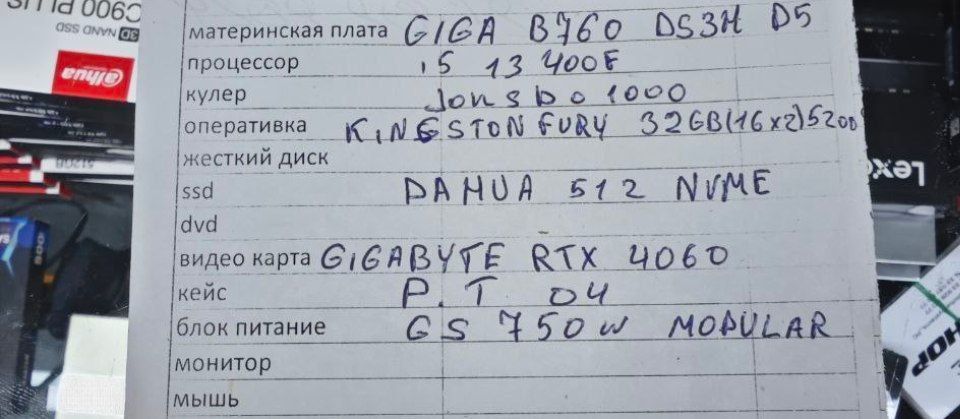 C900 PLUS
3D NAND SSD
alhua
512GB
Lexa
HOP
материнская плата GIGA B760 DS3H D5
процессор i5 13400F
кулер Jonsbo 1000
оперативка KINGSTON FURY 32GB(16x2)5200
жесткий диск
ssd DAHUA 512 NVME
dvd
видео карта GIGABYTE RTX 4060
кейс P.T 04
блок питание GS 750W MODULAR
монитор
мышь